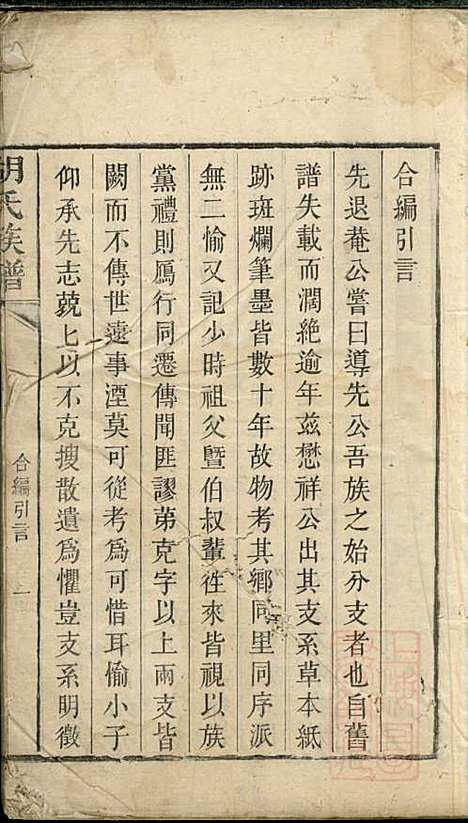 合編引言
先退菴公嘗曰導先公吾族之始分支者也自舊
譜失載而濶絶逾年兹懋祥公出其支系草本紙
跡斑斕筆墨皆數十年故物考其鄉同里同序派
無二愉又記少時祖父暨伯叔輩徃來皆視以族
黨禮則鴈行同遷傳聞匪謬第克字以上兩支皆
闕而不傳世遠事湮莫可從考為可惜耳愉小子
仰承先志兢上以不克搜散遺為懼豈支系明徵
胡氏族譜
合編引言
一